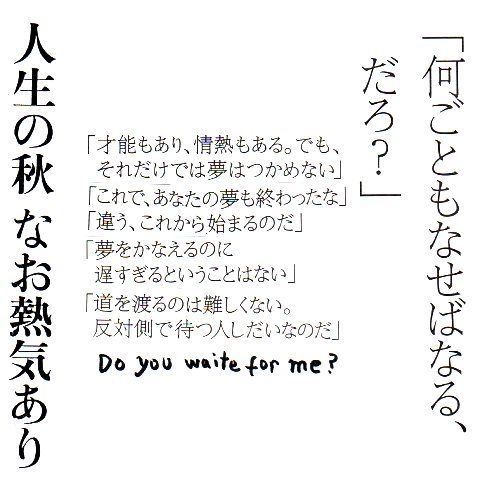 「何ごともなせばなる、
だろ?」
「才能もあり、情熱もある。でも、
それだけでは夢はつかめない」
「これで、あなたの夢も終わったな」
「違う、これから始まるのだ」
「夢をかなえるのに
遅すぎるということはない」
「道を渡るのは難しくない。
反対側で待つ人しだいなのだ」
Do you waite for me?
人生の秋 なお熱気あり